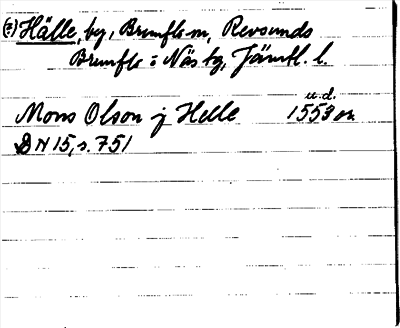 (?) Hälle, by, Brunflo sn, Revsunds
Brunflo o Näs tg, Jämtl. l.
u.d.
Mons Olson j Helle 1553 or.
DN 15, s. 751